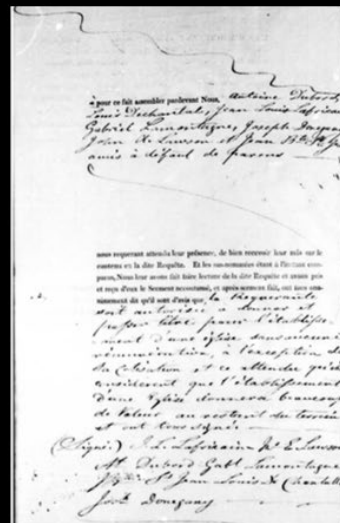 à pour ce fait assembler pardevant Nous, Antoine Dubord
Louis Dechantal, Jean Louis Lafricain
Gabriel Lamontagne, Joseph
John R. Lawson et Jean Bte St
amis à défaut de parens
nous requerant attendu leur présence, de bien recevoir leur avis sur le
contenu en la dite Requête. Et les sus-nommés étant à l'instant com-
parus, Nous leur avons fait faire lecture de la dite Requête et avons pris
et reçu d'eux le Serment accoutumé, et après serment fait, ont tous una-
nimement dit qu'il sont d'avis que, la Requérante
soit autorisée à donner et
passer titre pour l'établisse-
ment d'une église sans aucune
rémunération, à l'exception de
sa Cotisation et ce attendu qu'ils
considèrent que l'établissement
d'une Eglise donnera beaucoup
de valeur au restant du terrain
et ont tous signé
(Signé) J. L. Lafricain Lawson
Dubord Gabl Lamontagne
St Jean Louis